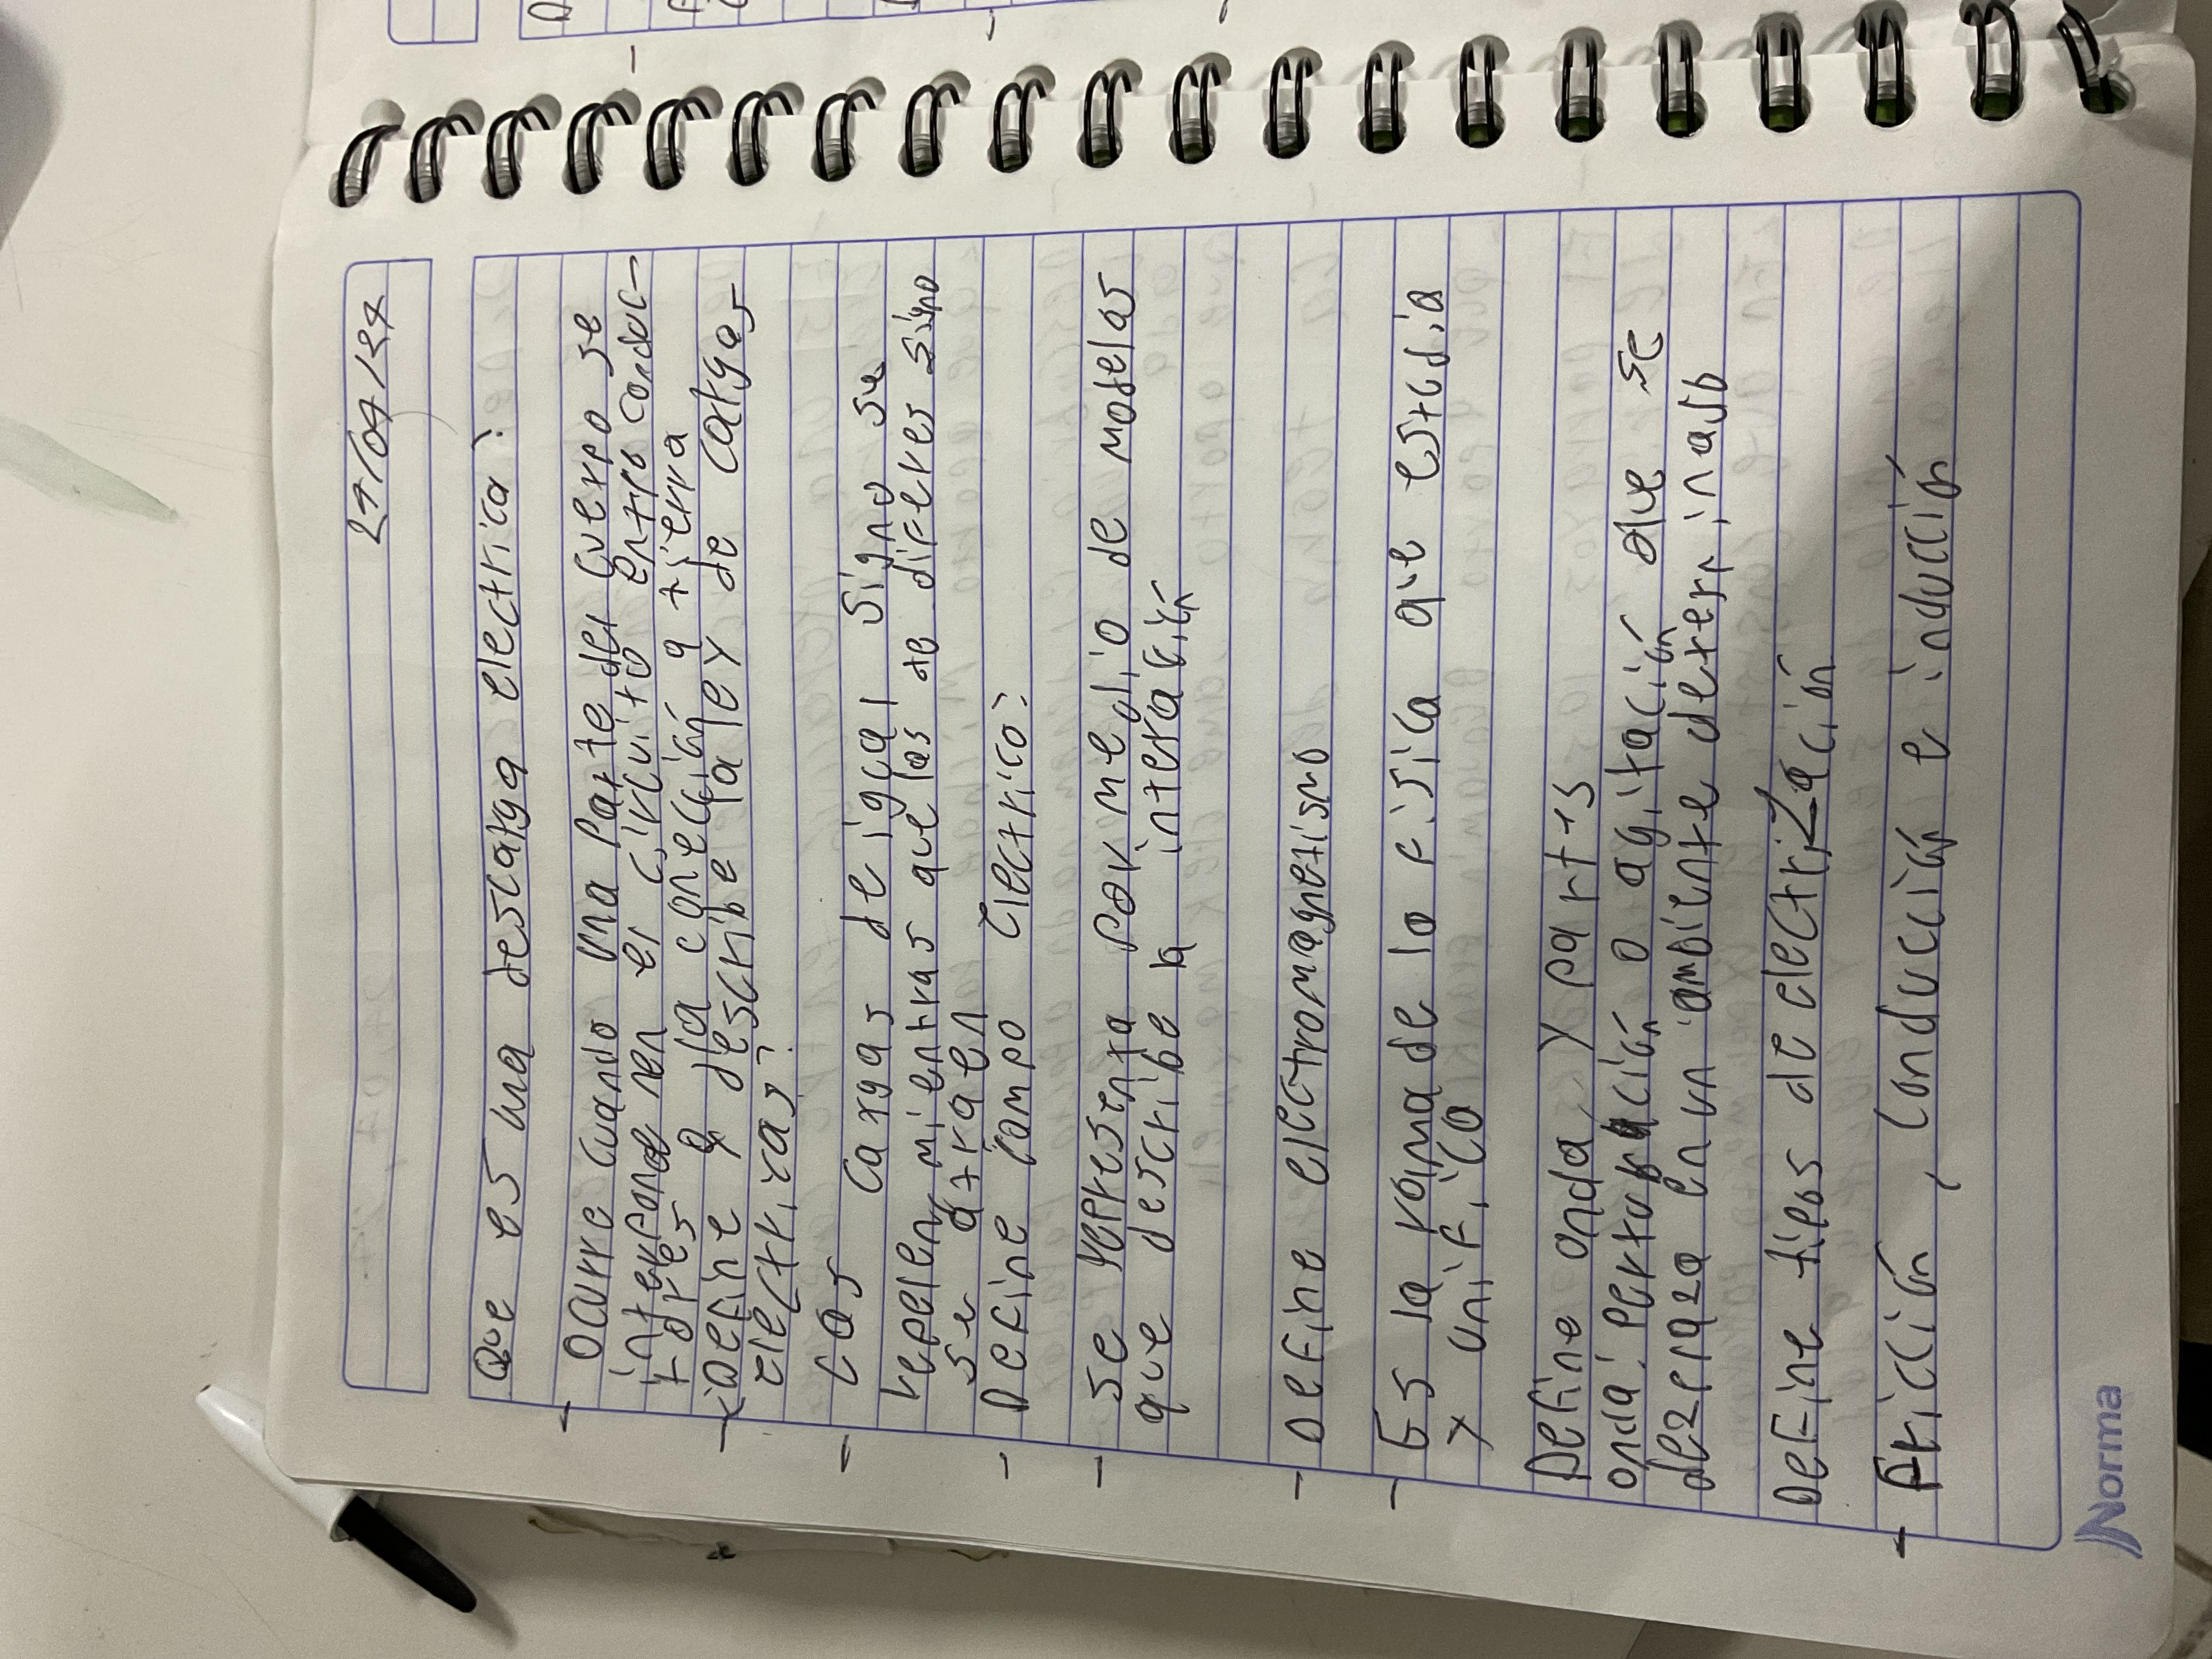 Que es una descarga electrica?
- Ocurre cuando una Parte del cuerpo se
interponde nen el circuito entro conduc-
tores o dla coneccián a tierra
- ¿Define o describe la ley de cargas
electricas?
- Las Cargas de igual Signo se
repelen mientras que las de diferes Signo
se atraen
- Define campo Electrico:
- Se representa por medio de modelos
que describe la interación
- Define electromagnetismo
- Es la rama de la fisica que estudia
y unifico
Define onda, y parts
onda: perturbación o agitación que se
dezplaza en un ambiente determinado
Define tipos de electrización
- Fricción, Conducción e inducción
Norma